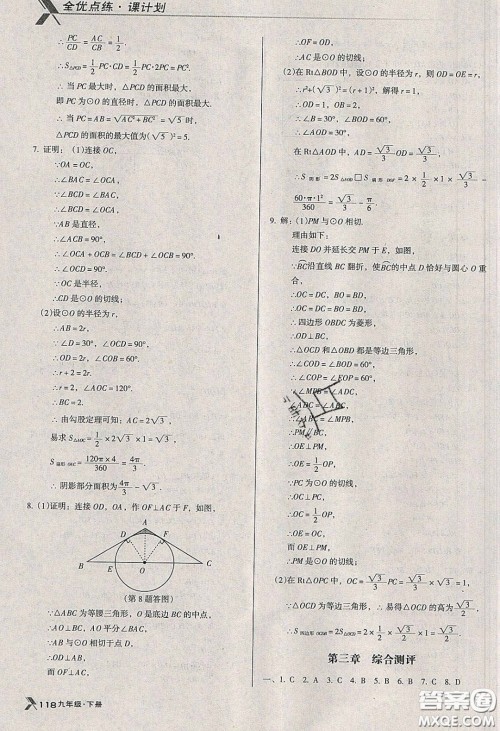 全优点练·课计划
∴PC/CD=AC/CB=1/2
∴S△PCD=1/2PC·CD=1/2PC·2PC=PC².
∴当 PC 最大时，△PCD 的面积最大.
即 PC 为⊙O 的直径时，△PCD 的面积最大.
∴当 PC=AB=√(AC²+BC²)=√5时，
△PCD 的面积的最大值为(√5)²=5.
7. 证明：(1)连接 OC，
∵OA=OC，
∴∠BAC=∠OCA，
∵∠BCD=∠BAC，
∴∠BCD=∠OCA，
∵AB 是直径，
∴∠ACB=90°，
∴∠OCA+OCB=∠BCD+∠OCB=90°
∴∠OCD=90°
∵OC 是半径，
∴CD 是⊙O 的切线；
(2)设⊙O 的半径为 r，
∴AB=2r，
∵∠D=30°，∠OCD=90°，
∴OD=2r，∠COB=60°
∴r+2=2r，
∴r=2，∠AOC=120°
∴BC=2，
∴由勾股定理可知：AC=2√3，
易求 S△AOC=1/2×2√3×1=√3
S扇形OAC=120π×4/360=4π/3
∴阴影部分面积为4π/3-√3.
8. (1)证明：连接 OD，OA，作 OF⊥AC 于 F，如图，
A
D
F
B
O
C
(第 8 题答图)
∵△ABC 为等腰三角形，O 是底边 BC 的中点，
∴AO⊥BC，AO 平分∠BAC，
∵AB 与⊙O 相切于点 D，
∴OD⊥AB，
而 OF⊥AC，
∴OF=OD，
∴AC 是⊙O 的切线；
(2)在 Rt△BOD 中，设⊙O 的半径为 r，则 OD=OE=r，
∴r²+(√3)²=(r+1)²，解得 r=1，
∴OD=1，OB=2，
∴∠B=30°，∠BOD=60°，
∴∠AOD=30°，
在 Rt△AOD 中，AD=√3/3OD=√3/3，
∴S阴影=2S△AOD□S扇形DOF=2×1/2×1×√3/3-
60·π·1²/360=√3/3-π/6.
9. 解：(1)PM 与⊙O 相切.
理由如下：
连接 DO 并延长交 PM 于 E，如图，
∵BC沿直线 BC 翻折，使BC的中点 D 恰好与圆心 O 重
合，
∴OC=DC，BO=BD，
∴OC=DC=BO=BD，
∴四边形 OBDC 为菱形，
∴OD⊥BC，
∴△OCD 和△OBD 都是等边三角形，
∴∠COD=∠BOD=60°，
∴∠COP=∠EOP=60°，
∵∠MPB=∠ADC，
∠ADC=∠ABC，
∴∠ABC=∠MPB，
∴PM∥BC，
∴OE⊥PM，
∴OE=1/2OP，
∵PC 为⊙O 的切线，
∴OC⊥PC，
∴OC=1/2OP，
∴OE=OC，
而 OE⊥PM，
∴PM 是⊙O 的切线；
(2)在 Rt△OPC 中，OC=√3/3PC=√3/3×√3=1，
∵△OCD 为等边三角形，∴易得△OCD 的高为√3/2，
∴S四边形OBDC=2S△OCD=2×1/2×1×√3/2=√3/2.
第三章 综合测评
一、1. C 2. A 3. C 4. B 5. C 6. B 7. C 8. D
118九年级·下册
答案圈
MXQE.COM